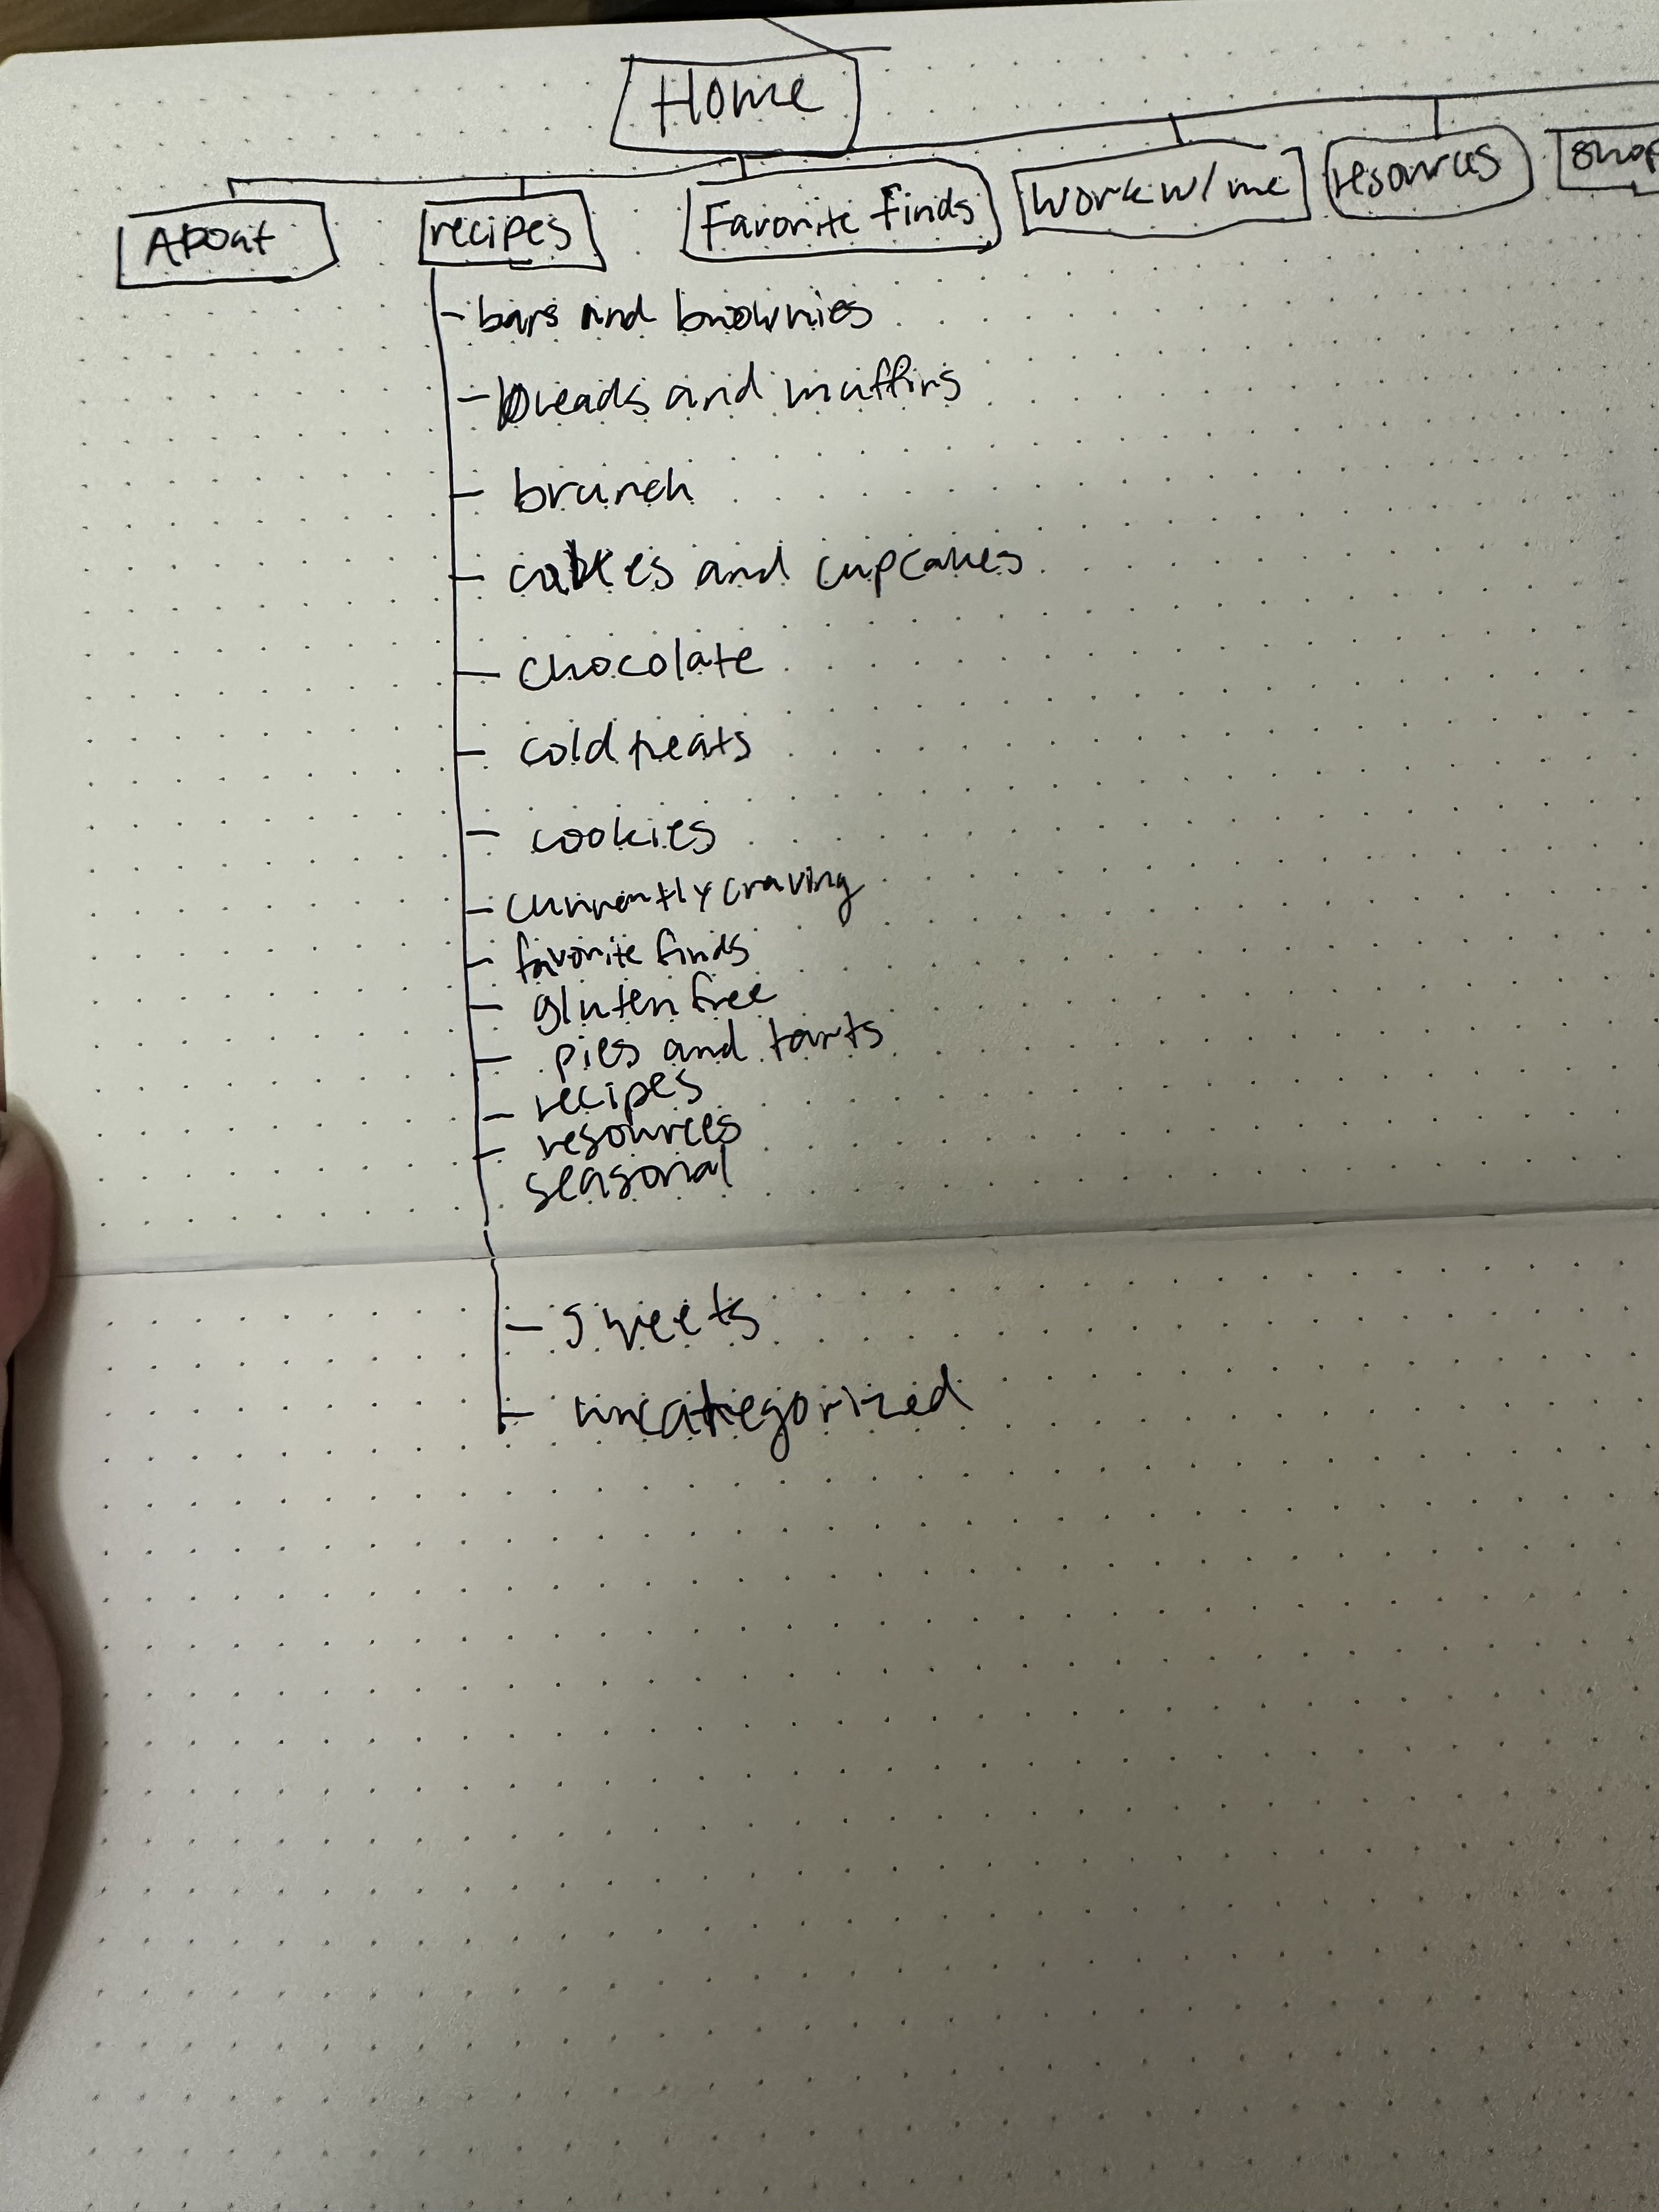 Home
About
recipes
Favorite Finds
Work w/ me
resources
shop
bars and brownies
breads and muffins
brunch
cakes and cupcakes
chocolate
cold treats
cookies
currently craving
favorite finds
gluten free
pies and tarts
recipes
resources
seasonal
sweets
uncategorized